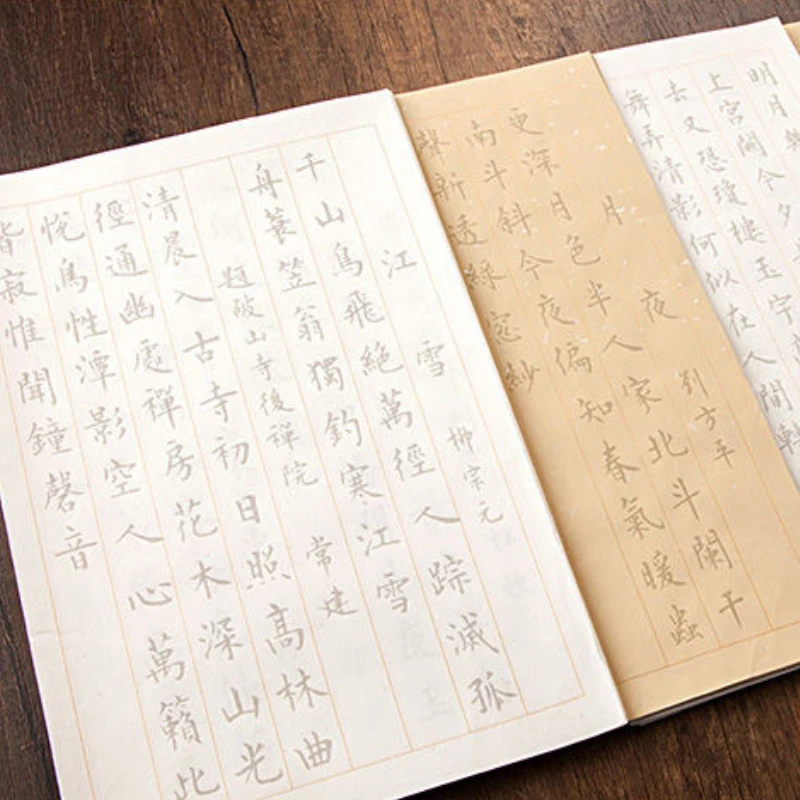 江雪 柳宗元
千山鳥飛絕萬徑人踪滅孤
舟蓑笠翁獨釣寒江雪
題破山寺後禪院 常建
清晨入古寺初日照高林曲
徑通幽處禪房花木深山光
悅鳥性潭影空人心萬籟此
皆寂惟聞鐘磬音
月夜 劉方平
更深月色半人家北斗闌干
南斗斜今夜偏知春氣暖蟲
聲新透綠窗紗
明月
上宮闕今夕
去又恐瓊樓玉宇
舞弄清影何似在人間轉